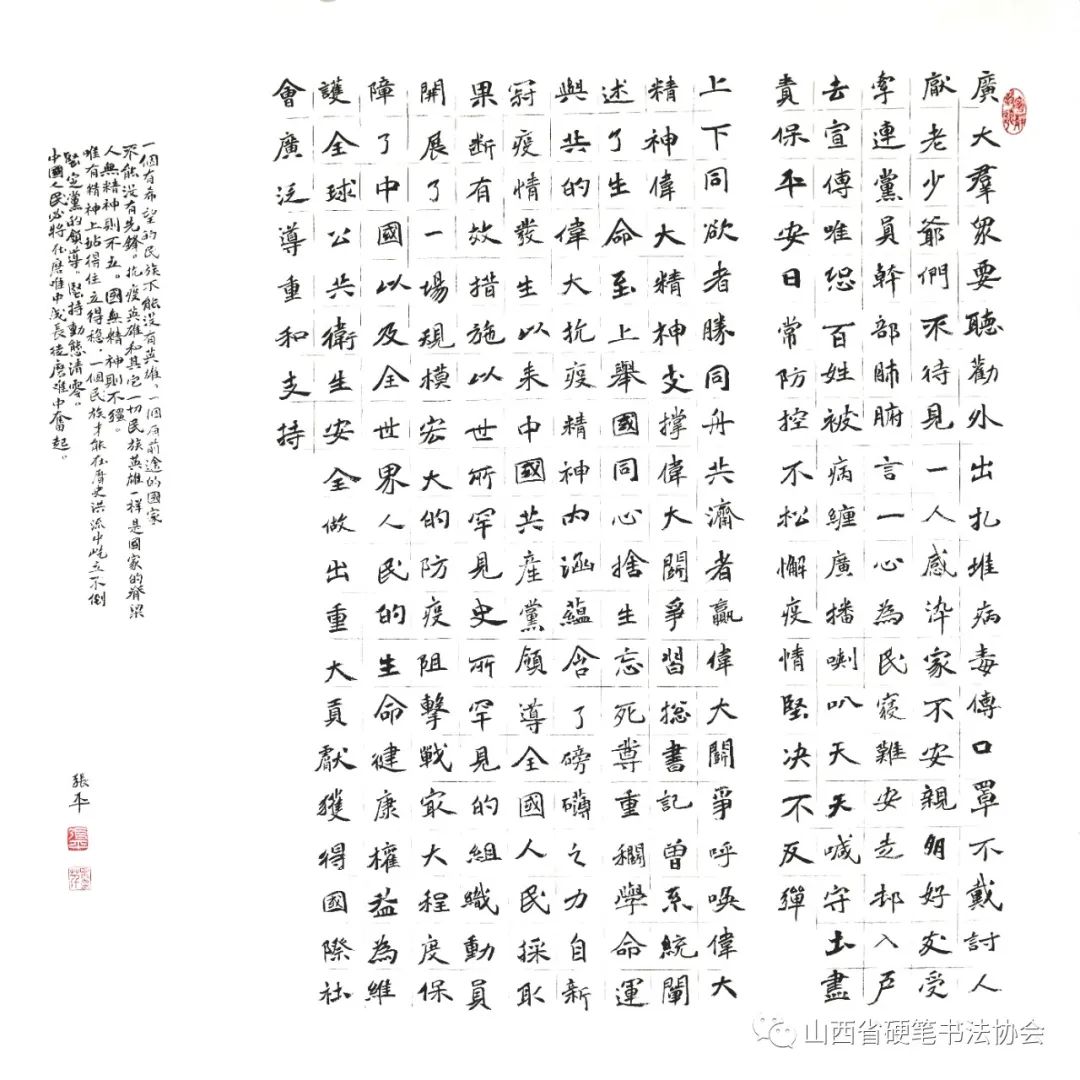 廣大羣眾要聽勸外出扎堆病毒傳口罩不戴討人
厭老少爺們不待見一人感染家不安親朋好友受
牽連黨員幹部肺腑言一心為民寢難安走邨入戶
去宣傳唯恐百姓被病纏廣播喇叭天天喊守土盡
責保平安日常防控不松懈疫情堅决不反彈
上下同欲者勝同舟共濟者贏偉大鬪爭呼喚偉大
精神偉大精神支撐偉大鬪爭習総書記曾系統闡
述了生命至上舉國同心捨生忘死尊重科學命運
與共的偉大抗疫精神內涵蘊含了磅礴之力自新
冠疫情發生以来中國共產黨領導全國人民採取
果断有效措施以世所罕見史所罕見的組織動員
開展了一場規模宏大的防疫阻擊戰最大程度保
障了中國以及全世界人民的生命健康權益為維
護全球公共衛生安全做出重大貢獻獲得國際社
會廣泛導重和支持
一個有希望的民族不能没有英雄，一個有前途的國家
不能没有先鋒。抗疫英雄和其它一切民族英雄一样是國家的脊梁
人無精神則不立。國無精神則不强。
唯有精神上站得住立得穩，一個民族才能在歷史洪流中屹立不倒
堅定黨的領導。堅持動態清零。
中國人民必将在磨难中成長從磨难中奮起。
張平
山西省硬笔书法协会